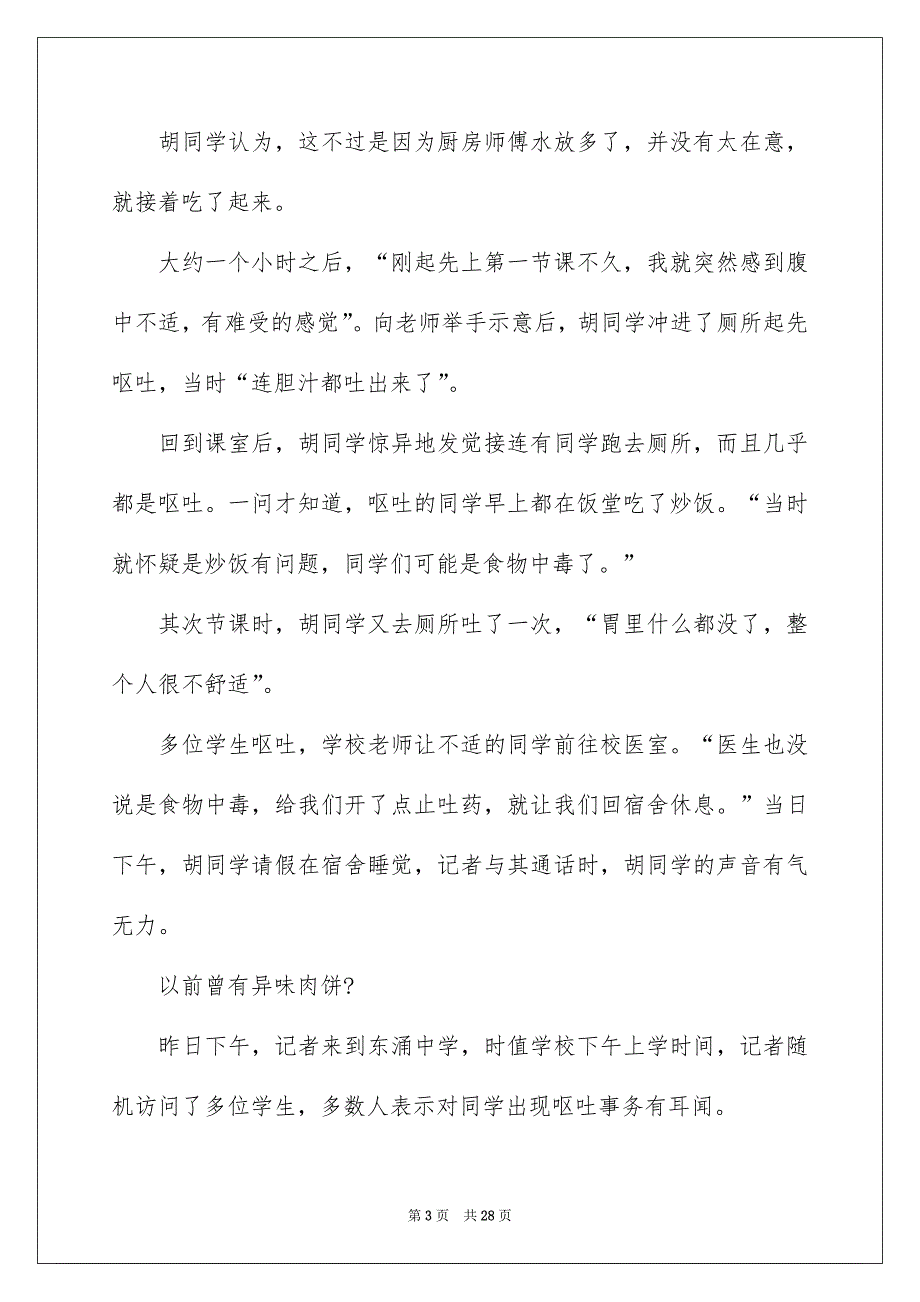 胡同学认为，这不过是因为厨房师傅水放多了，并没有太在意，
就接着吃了起来。
大约一个小时之后，“刚起先上第一节课不久，我就突然感到腹
中不适，有难受的感觉”。向老师举手示意后，胡同学冲进了厕所起先
呕吐，当时“连胆汁都吐出来了”。
回到课室后，胡同学惊异地发觉接连有同学跑去厕所，而且几乎
都是呕吐。一问才知道，呕吐的同学早上都在饭堂吃了炒饭。“当时
就怀疑是炒饭有问题，同学们可能是食物中毒了。”
其次节课时，胡同学又去厕所吐了一次，“胃里什么都没了，整
个人很不舒适”。
多位学生呕吐，学校老师让不适的同学前往校医室。“医生也没
说是食物中毒，给我们开了点止吐药，就让我们回宿舍休息。”当日
下午，胡同学请假在宿舍睡觉，记者与其通话时，胡同学的声音有气
无力。
以前曾有异味肉饼?
昨日下午，记者来到东涌中学，时值学校下午上学时间，记者随
机访问了多位学生，多数人表示对同学出现呕吐事务有耳闻。
第 3 页 共 28 页